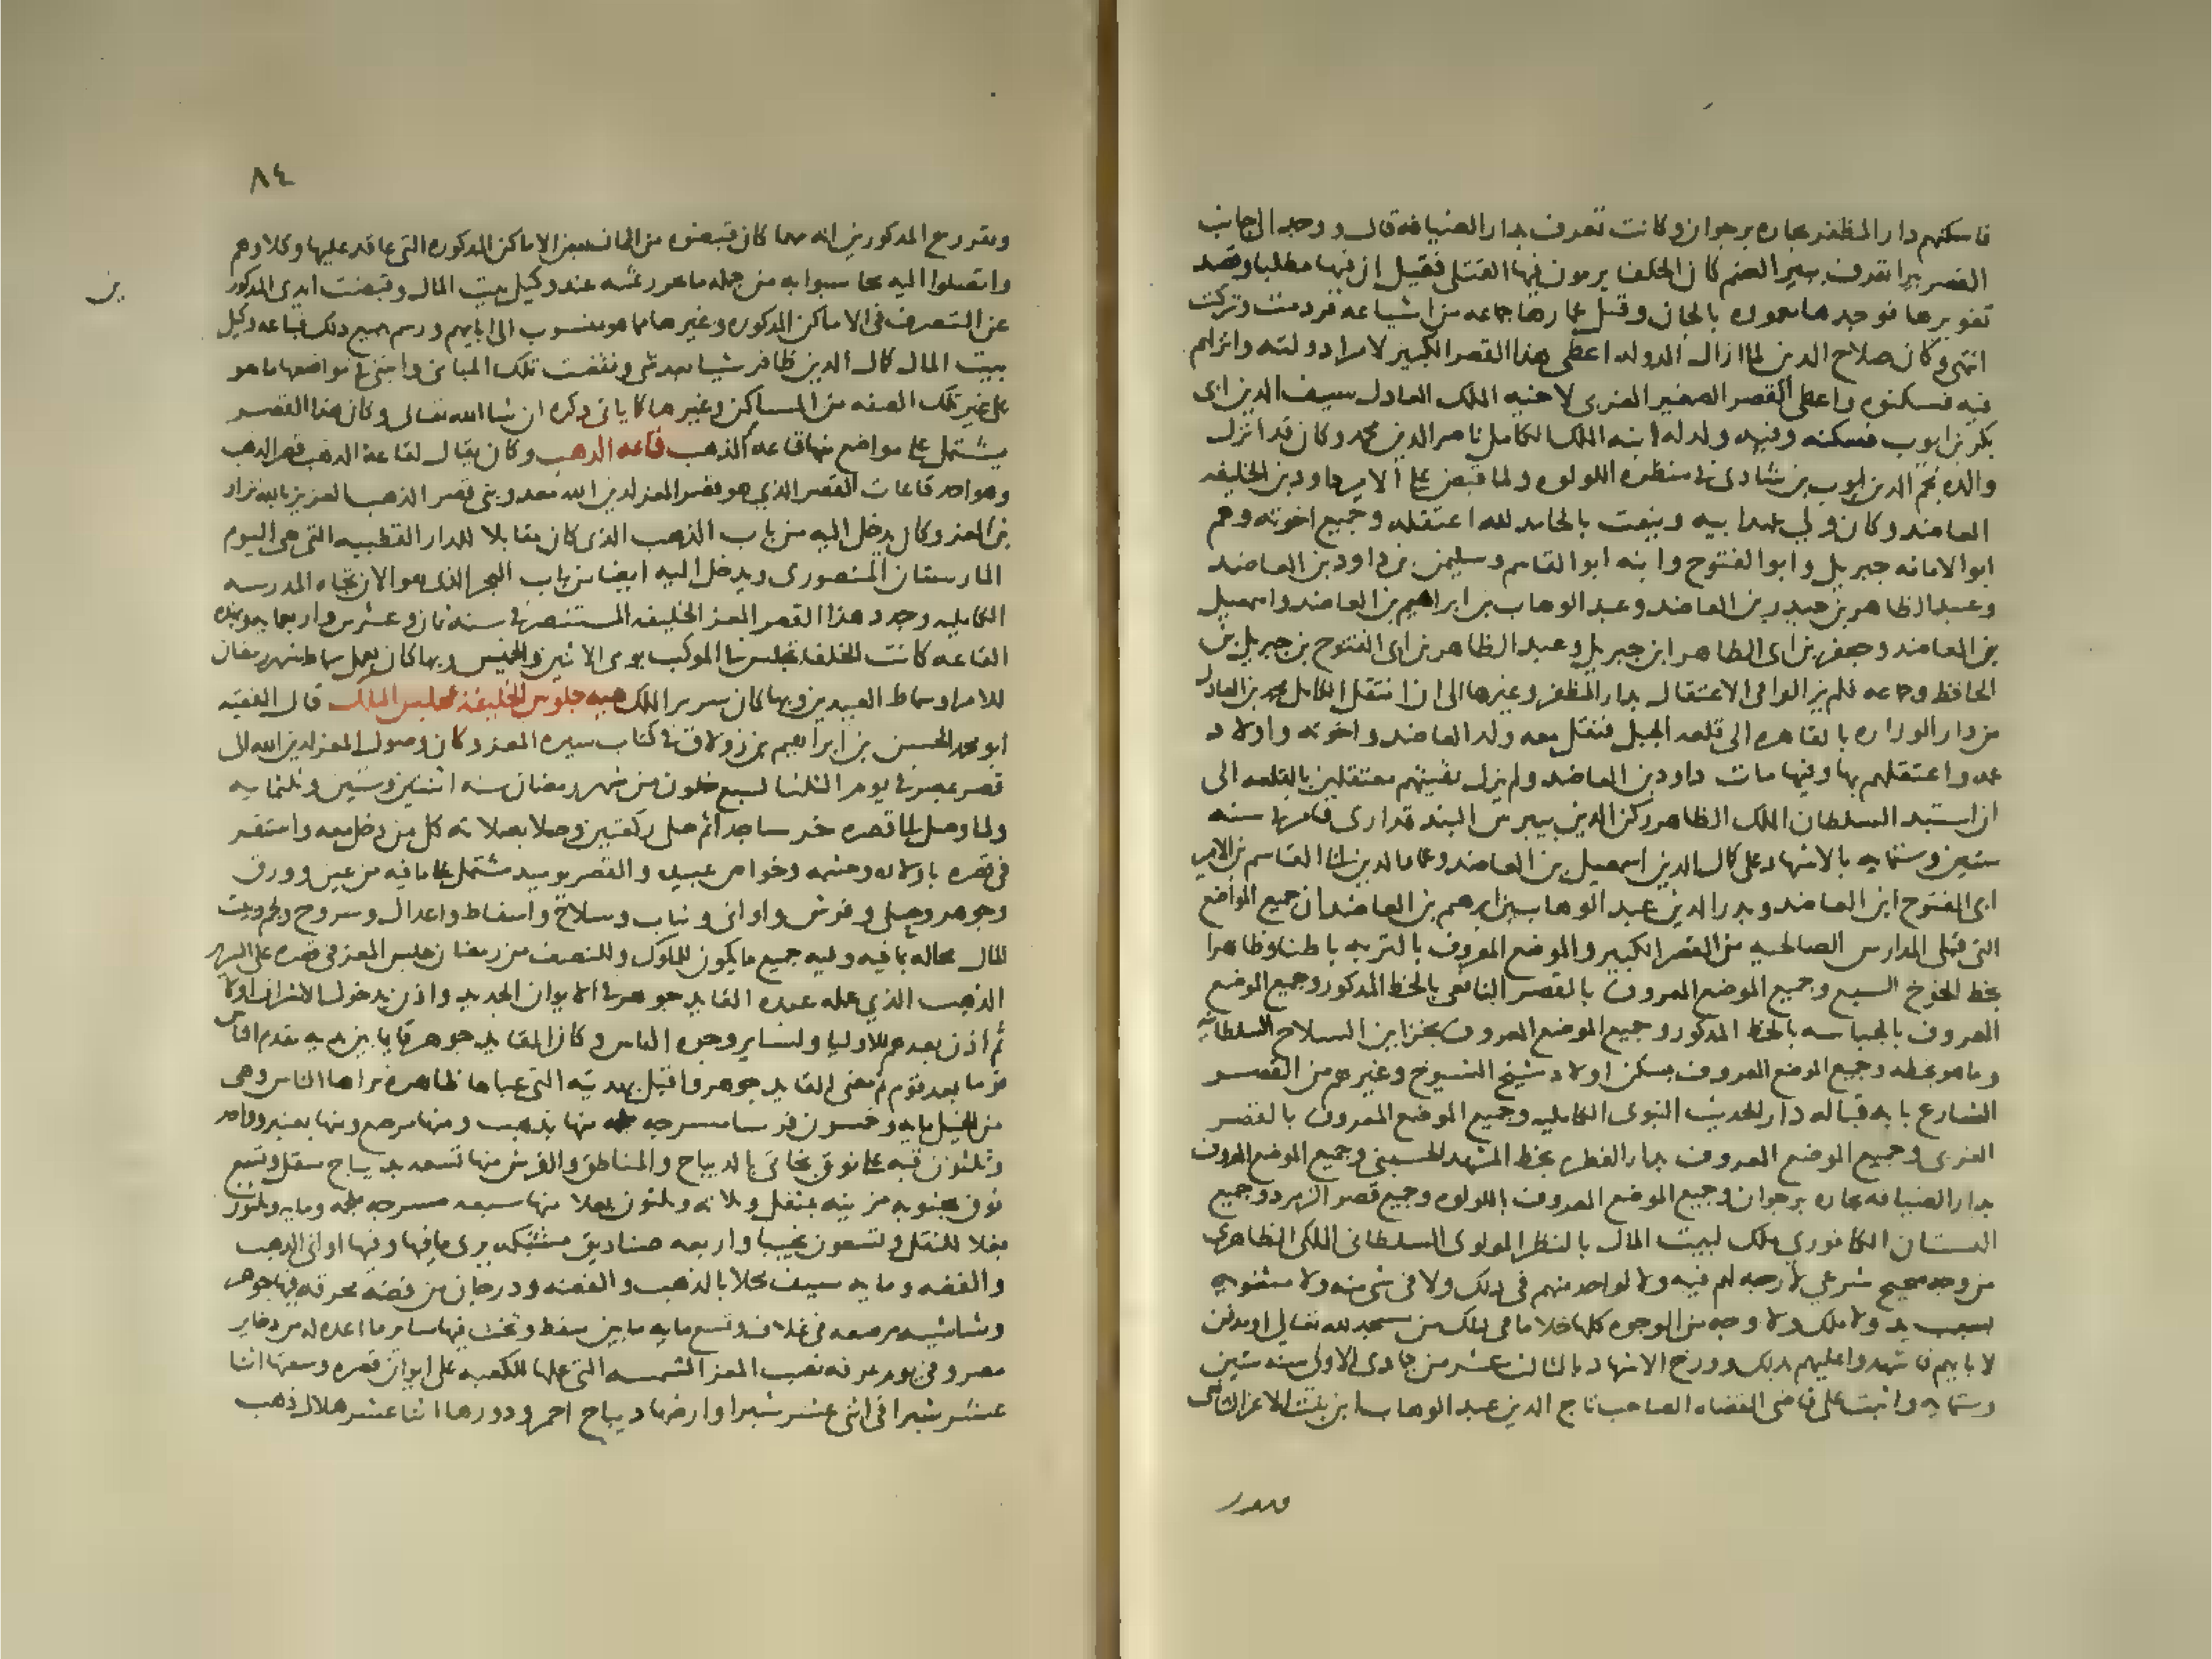 فاسكنهم دار المظفر بحاره برجوان وكانت تعرف بدار الضيافه قال ووجد الى جانب
القصر بير تعرف ببير الصنم كان الخلفا يرمون فيها القتلى فقيل ان فيها مطلبا وقصد
تغويرها فوجدها معموره بالجان وقتل عمارها جماعه من اشياعه فردمت وتركت
انتهى وكان صلاح الدين لما ازال الدوله اعطى هذا القصر الكبير لامرا دولته وانزلهم
فيه فسكنوه واعطى القصر الصغير الغربى لاخيه الملك العادل سيف الدين ابى
بكر بن ايوب فسكنه وفيه ولد له ابنه الملك الكامل ناصر الدين محمد وكان قد انزل
والده نجم الدين ايوب بن شادى فى منظره اللولوه ولما قبض على الامير داود بن الخليفه
العاضد وكان ولى عهد ابيه وينعت بالحامد لله اعتقله وجميع اخوته وهم
ابو الامانه جبريل وابو الفتوح وابنه ابو القاسم وسليمن بن داود بن العاضد
وعبد الظاهر بن حيدره بن العاضد وعبد الوهاب بن ابراهيم بن العاضد واسمعيل
بن العاضد وجعفر بن ابى الظاهر ابن جبريل وعبد الظاهر بن ابى الفتوح بن جبريل بن
الحافظ وجماعه فلم يزالوا فى الاعتقال بدار المظفر وغيرها الى ان انتقل الكامل محمد بن العادل
من دار الوزاره بالقاهره الى قلعه الجبل فنقل معه ولد العاضد واخوته واولاد
عمه واعتقلهم بها وفيها مات داود بن العاضد ولم يزل بقيتهم معتقلين بالقلعه الى
ان استبد السلطان الملك الظاهر ركن الدين بيبرس البندقدارى فامر فى سنه
ستين وستمايه بالاشهاد على كمال الدين اسمعيل بن العاضد وعماد الدين ابى القاسم بن الامير
ابى الفتوح ابن العاضد وبدر الدين عبد الوهاب بن ابرهيم بن العاضد ان جميع المواضع
التى قبلى المدارس الصالحيه من القصر الكبير والموضع المعروف بالتربه باطنا وظاهرا
بخط الخوخ السبع وجميع الموضع المعروف بالقصر اليافعى بالخط المذكور وجميع الموضع
المعروف بالجباسه بالخط المذكور وجميع الموضع المعروف بخزاين السلاح السلطانيه
وما هو بخطه وجميع الموضع المعروف بسكن اولاد شيخ الشيوخ وغيرهم من القصر
الشارع بابه قباله دار الحديث النبوى الكامليه وجميع الموضع المعروف بالقصر
الغربى وجميع الموضع المعروف بدار الفطره بخط المشهد الحسينى وجميع الموضع المعروف
بدار الضيافه بحاره برجوان وجميع الموضع المعروف باللولوه وجميع قصر الزمرد وجميع
البستان الكافورى ملك لبيت المال بالنظر المولوى السلطانى الملكى الظاهرى
من وجه صحيح شرعى لا رجعه لهم فيه ولا لواحد منهم فى ذلك ولا فى شى منه ولا مثنويه
بسبب يد ولا ملك ولا وجه من الوجوه كلها خلا ما فى ذلك من مسجد لله تعالى او مدفن
لابايهم فاشهدوا عليهم بذلك وورخ الاشهاد بالثالث عشر من جمادى الاولى سنه ستين
وستمايه واثبت على قاضى القضاه الصاحب تاج الدين عبد الوهاب ابن بنت الاعز الشافعى
وتقرر
٨٤
وتقرر مع المذكورين انه مهما كان قبضوه من اثمان بعض الاماكن المذكوره التى عاقد عليها وكلاوهم
واتصلوا اليه يحاسبوا به من جمله ما تحرر ثمنه عند وكيل بيت المال وقبضت ايدى المذكورين
عن التصرف فى الاماكن المذكوره وغيرها مما هو منسوب الى ابايهم ورسم ببيع ذلك فباعه وكيل
بيت المال كمال الدين ظافر شيا بعد شى ونقضت تلك المبانى وابتنى فى مواضعها ما هو
على غير تلك الصفه من المساكن وغيرها كما ياتى ذكره ان شا الله تعالى وكان هذا القصر
يشتمل على مواضع منها قاعه الذهب قاعه الذهب وكان يقال لقاعه الذهب قصر الذهب
وهو احد قاعات القصر الذي هو قصر المعز لدين الله معد وبنى قصر الذهب العزيز بالله نزار
بن المعز وكان يدخل اليه من باب الذهب الذى كان مقابلا للدار القطبيه التى هى اليوم
المارستان المنصورى ويدخل اليه ايضا من باب البحر الذى هو الان تجاه المدرسه
الكامليه وجدد هذا القصر المعز الخليفه المستنصر فى سنه ثمان وعشرين واربعمايه وبهذه
القاعه كانت الخلفا تجلس فى الموكب يومى الاثنين والخميس وبها كان يعمل سماط شهر رمضان
للامرا وسماط العيدين وبها كان سرير الملك هيه جلوس الخليفه بمجلس الملك قال الفقيه
ابو محمد الحسن بن ابراهيم بن زولاق فى كتاب سيره المعز وكان وصول المعز لدين الله الى
قصره بمصر فى يوم الثلثا لسبع خلون من شهر رمضان سنه اثنتين وستين وثلثمايه
ولما وصل الى قصره خر ساجدا ثم صلى ركعتين وصلا بصلاته كل من دخل معه واستقر
فى قصره باولاده وحشمه وخواص عبيده والقصر يوميد مشتمل على ما فيه من عين وورق
وجوهر وحلى وفرش واوانى وثياب وسلاح واسفاط واعدال وسروج ولجم وبيت
المال بحاله بما فيه وفيه جميع ما يكون للملوك وللنصف من رمضان جلس المعز فى قصره على السرير
الذهب الذي عمله عبده القايد جوهر فى الايوان الجديد واذن بدخول الاشراف اولا
ثم اذن بعدهم للاوليا ولساير وجوه الناس وكان القايد جوهر قايما بين يديه يقدم الناس
قوما بعد قوم ثم مضى القايد جوهر واقبل بهديته التى عباها ظاهره يراها الناس وهى
من الخيل مايه وخمسون فرسا مسرجه ملجمه منها بذهب ومنها مرصع ومنها بعنبر وواحد
وثلثون قبه على نوق بخاتى بالديباج والمناطق والفرش منها تسعه بديباج مثقل وتسع
نوق مجنوبه مزينه بمثقل وثلاثه وثلثون بغلا منها سبعه مسرجه ملجمه ومايه وثلثون
بغلا للنقل وتسعون نجيبا واربعه صناديق مشبكه يرى ما فيها وفيها اوانى الذهب
والفضه ومايه سيف محلا بالذهب والفضه ودرجان من فضه مخرقه فيها جوهر
وشاشيه مرصعه فى غلاف وتسع مايه ما بين سفط وتخت فيها ساير ما اعده له من ذخاير
مصر وفى يوم عرفه نصب المعز الشمسه التى عملها للكعبه على ايوان قصره وسعتها اثنا
عشر شبرا فى اثنى عشر شبرا وارضها ديباج احمر ودورها اثنا عشر هلال ذهب